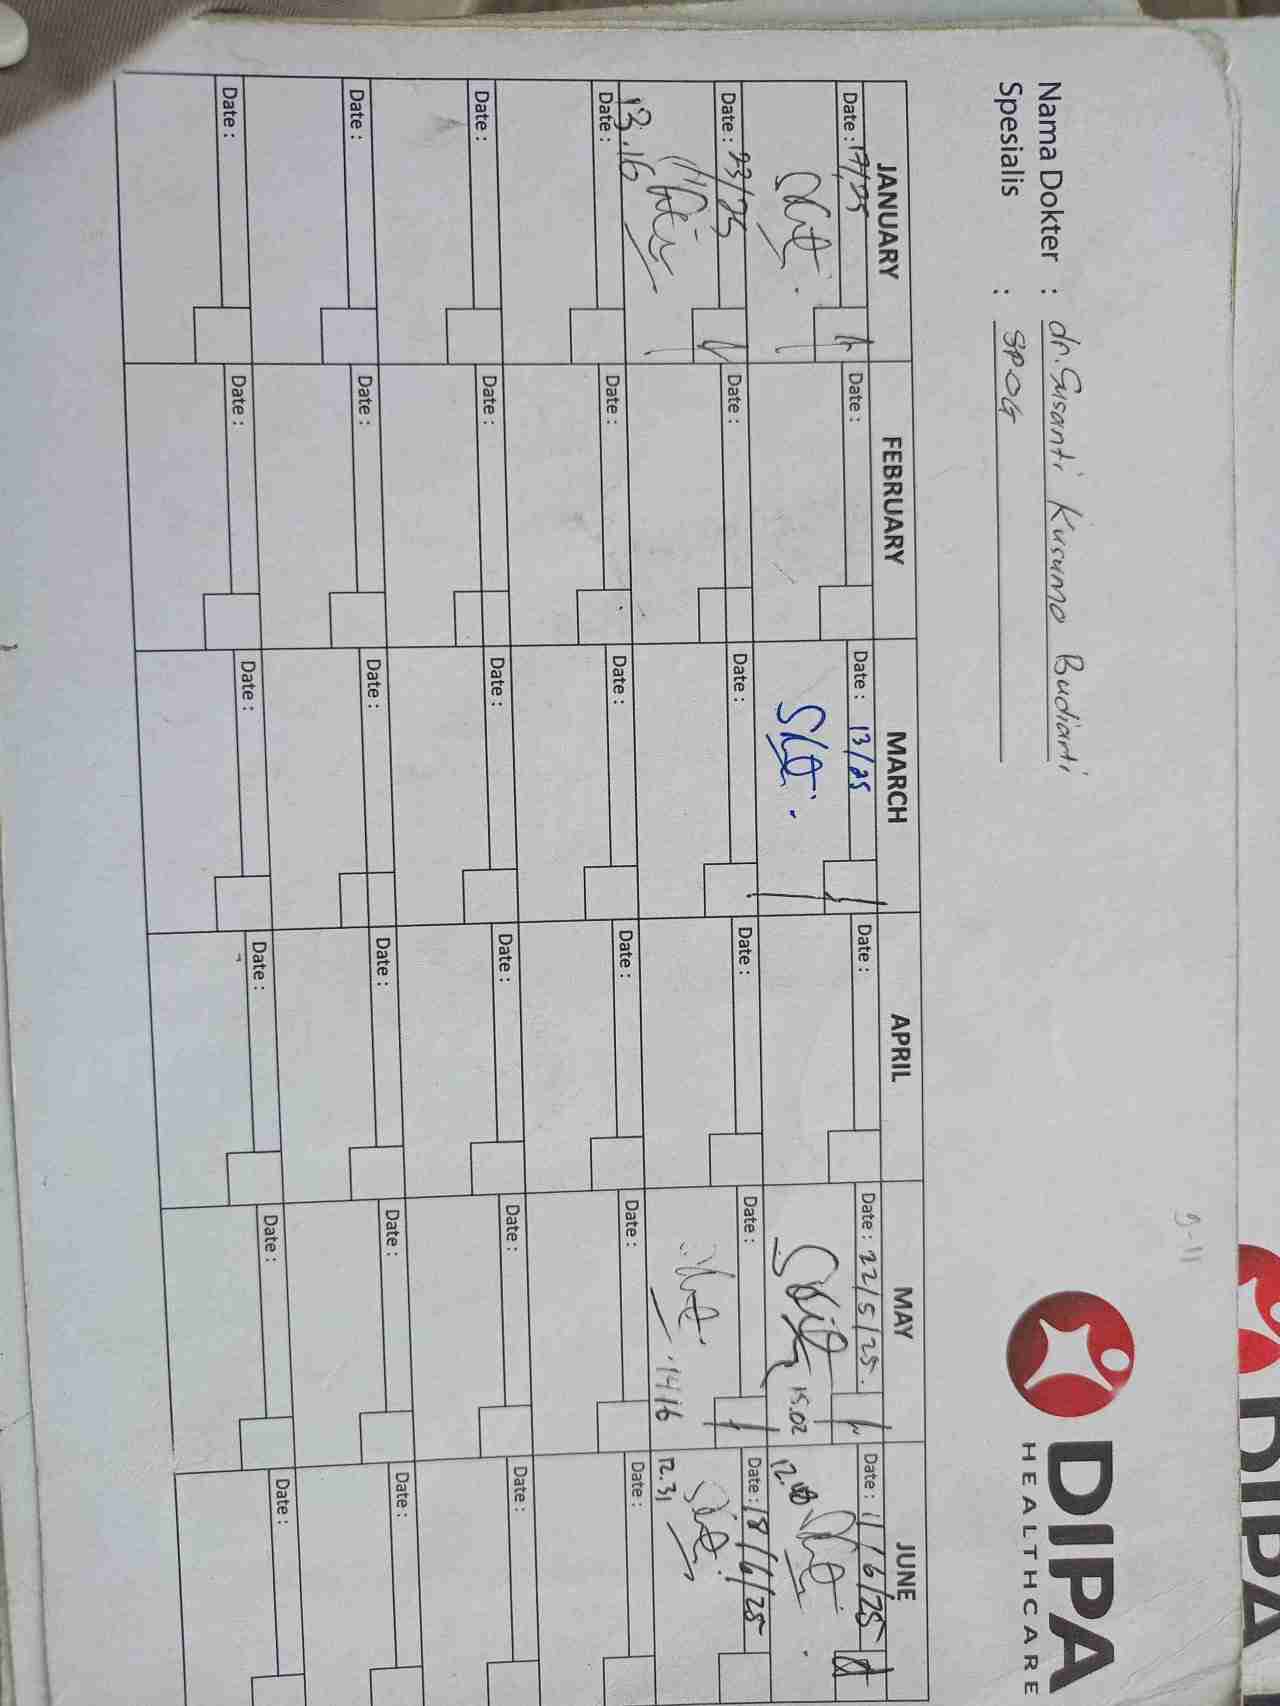 DIPA
HEALTHCARE
Nama Dokter : dr. Susanti Kusumo Budiarti
Spesialis : SPOG
JANUARY FEBRUARY MARCH APRIL MAY JUNE
Date : 17/25 Date : Date : 13/25 Date : Date : 22/5/25. Date : 11/6/25
15.02
Date : 23/25 Date : Date : Date : Date : Date : 18/6/25
13.16 1416 12.31
Date : Date : Date : Date : Date : Date :
Date : Date : Date : Date : Date : Date :
Date : Date : Date : Date : Date : Date :
Date : Date : Date : Date : Date : Date :
DIPA